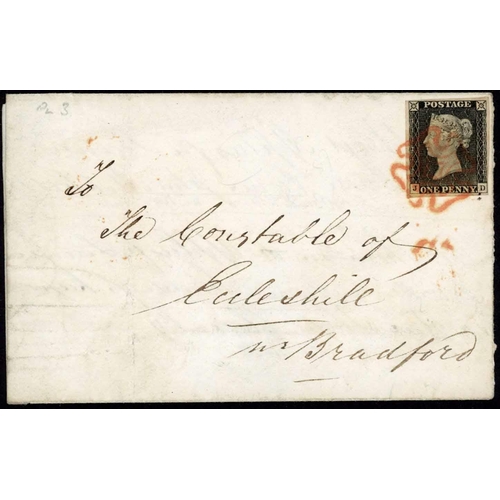 PL 3
POSTAGE
J D
ONE PENNY
To
The Constable of
Eccleshill
nr Bradford